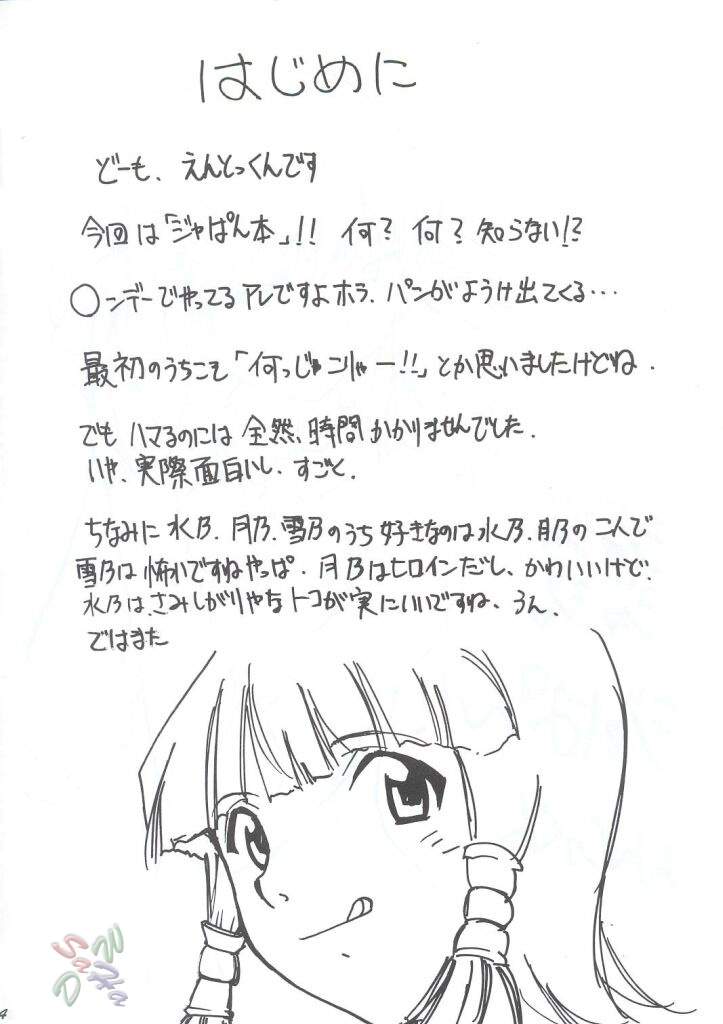 はじめに
どーも、えんとっくんです
今回は「ジャぱん本」!! 何? 何? 知らない!?
○ンデーでやってるアレですよホラ、パンがようけ出てくる…
最初のうちこそ「何っじゃこりゃー!!」とか思いましたけどね.
でもハマるのには全然、時間かかりませんでした.
いや、実際面白いし、すごく.
ちなみに水乃、月乃、雪乃のうち好きなのは水乃、月乃のこんで
雪乃は怖いですねやっぱ. 月乃はヒロインだし、かわいいけど、
水乃は、さみしがりやなトコが実にいいですね、うん.
ではまた
4